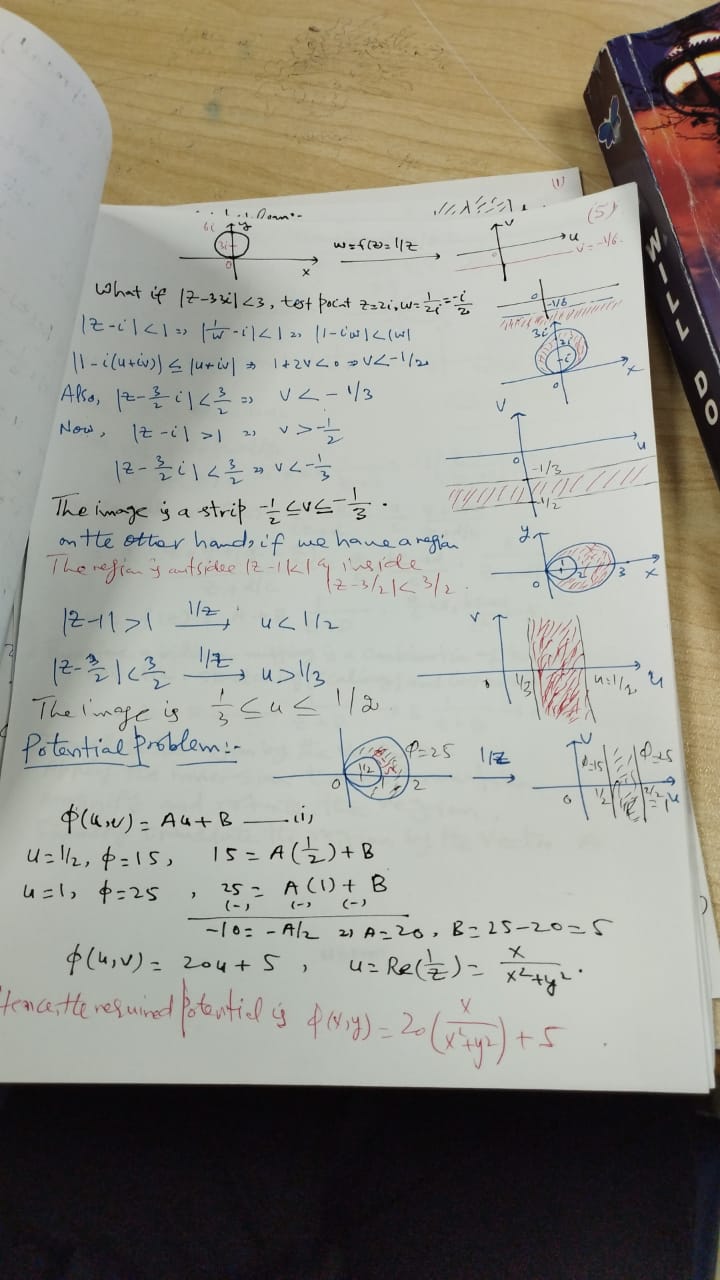 (1)
(5)
6i y
3i
0
x
w=f(z)=1/z
v
u
v=-1/6.
What if |z-33i|<3, test point z=2i, w=1/2i=-i/2
0
-1/6
|z-i|<1 => |1/w-i|<1 => |1-iw|<|w|
3i
2i
i
0
x
|1-i(u+iv)| ≤ |u+iv| => 1+2v<0 => v<-1/2
Also, |z-3/2 i|<3/2 => v<-1/3
Now, |z-i|>1 => v>-1/2
|z-3/2 i|<3/2 => v<-1/3
v
u
0
-1/3
-1/2
The image is a strip -1/2≤v≤-1/3.
on the other hand, if we have a region
The region is outside |z-1|<1 & inside
|z-3/2|<3/2.
y
0
1
2
3
x
|z-1|>1 1/z u<1/2
|z-3/2|<3/2 1/z u>1/3
v
1/3
u=1/2
u
The image is 1/3≤u≤1/2.
Potential Problem:-
φ=25
1/2
0
2
1/z
v
φ=15
φ=25
0
1/2
2/2=1
u
φ(u,v)=Au+B —(i)
u=1/2, φ=15, 15=A(1/2)+B
u=1, φ=25, 25=A(1)+B
(-) (-) (-)
-10=-A/2 => A=20, B=25-20=5
φ(u,v)=20u+5, u=Re(1/z)=x/x²+y².
Hence, the required potential is φ(x,y)=20(x/x²+y²)+5.
WILL DO